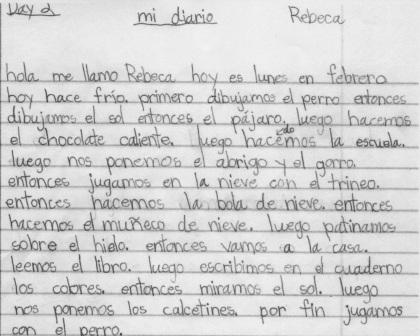 Day 2 mi diario Rebeca
hola me llamo Rebeca hoy es lunes en febrero
hoy hace frío. primero dibujamos el perro entonces
dibujamos el sol entonces el pájaro. luego hacemos
el chocolate caliente. luego hacemos la escuela.
luego nos ponemos el abrigo y el gorro.
entonces jugamos en la nieve con el trineo.
entonces hacemos la bola de nieve. entonces
hacemos el muñeco de nieve. luego patinamos
sobre el hielo. entonces vamos a la casa.
leemos el libro. luego escribimos en el cuaderno
los colores. entonces miramos el sol. luego
nos ponemos los calcetines. por fin jugamos
con el perro.